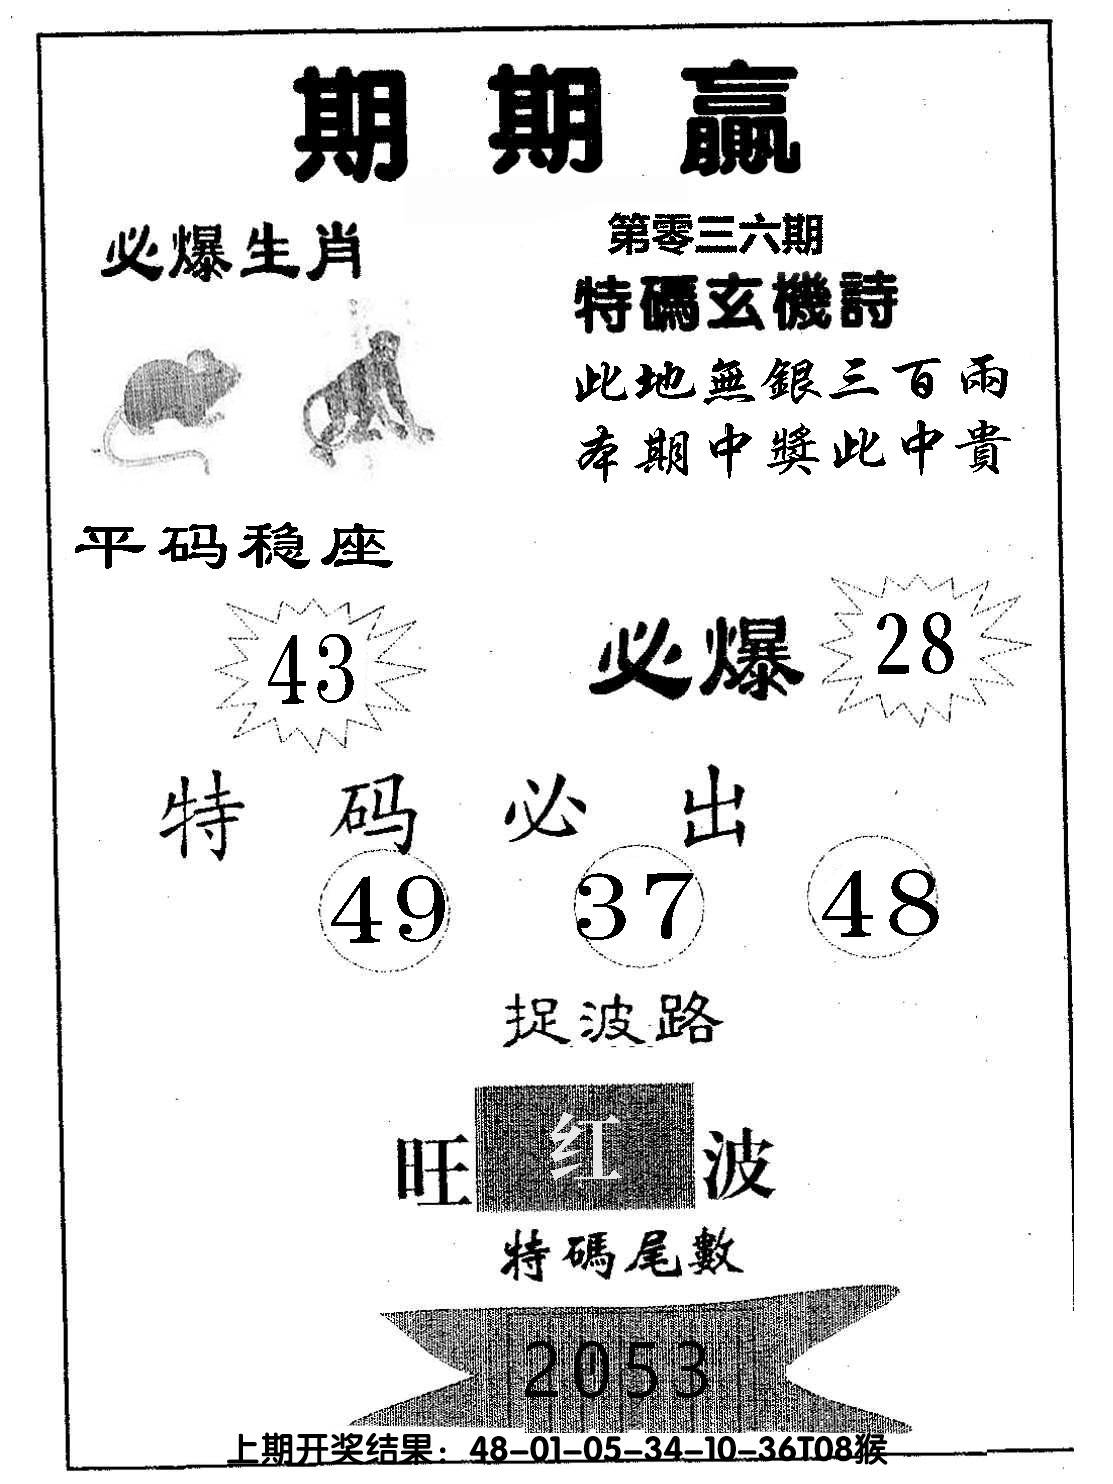 期期贏
必爆生肖
第零三六期
特碼玄機詩
此地無銀三百兩
本期中獎此中貴
平码稳座
43
必爆 28
特码必出
49 37 48
捉波路
旺红波
特碼尾數
2053
上期开奖结果：48-01-05-34-10-36T08猴